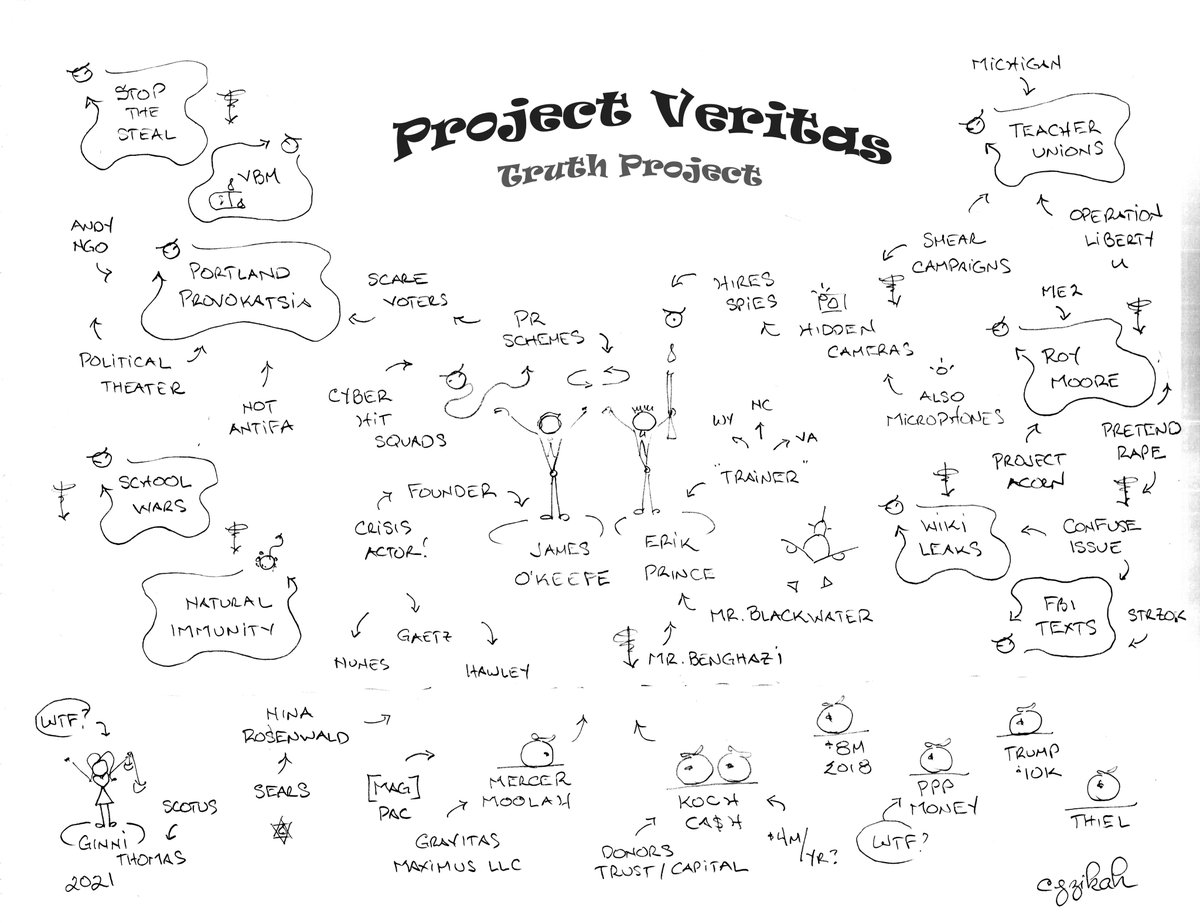 Project Veritas
Truth Project
STOP
THE
STEAL
VBM
ANDY
NGO
PORTLAND
PROVOKATSIA
POLITICAL
THEATER
NOT
ANTIFA
SCARE
VOTERS
PR
SCHEMES
CYBER
HIT
SQUADS
HIRES
SPIES
HIDDEN
CAMERAS
ALSO
MICROPHONES
SMEAR
CAMPAIGNS
MICHIGAN
TEACHER
UNIONS
OPERATION
LIBERTY
U
ME2
ROY
MOORE
PROJECT
ACORN
PRETEND
RAPE
CONFUSE
ISSUE
WIKI
LEAKS
FBI
TEXTS
STRZOK
WY
NC
VA
"TRAINER"
SCHOOL
WARS
NATURAL
IMMUNITY
FOUNDER
CRISIS
ACTOR!
NUNES
GAETZ
HAWLEY
JAMES
O'KEEFE
ERIK
PRINCE
MR. BLACKWATER
MR. BENGHAZI
WTF?
GINNI
THOMAS
2021
SCOTUS
NINA
ROSENWALD
SEARS
[MAG]
PAC
MERCER
MOOLAH
GRAVITAS
MAXIMUS LLC
KOCH
CA$H
DONORS
TRUST/CAPITAL
$4M/
YR?
$8M
2018
PPP
MONEY
WTF?
TRUMP
$10K
THIEL
cgzikah